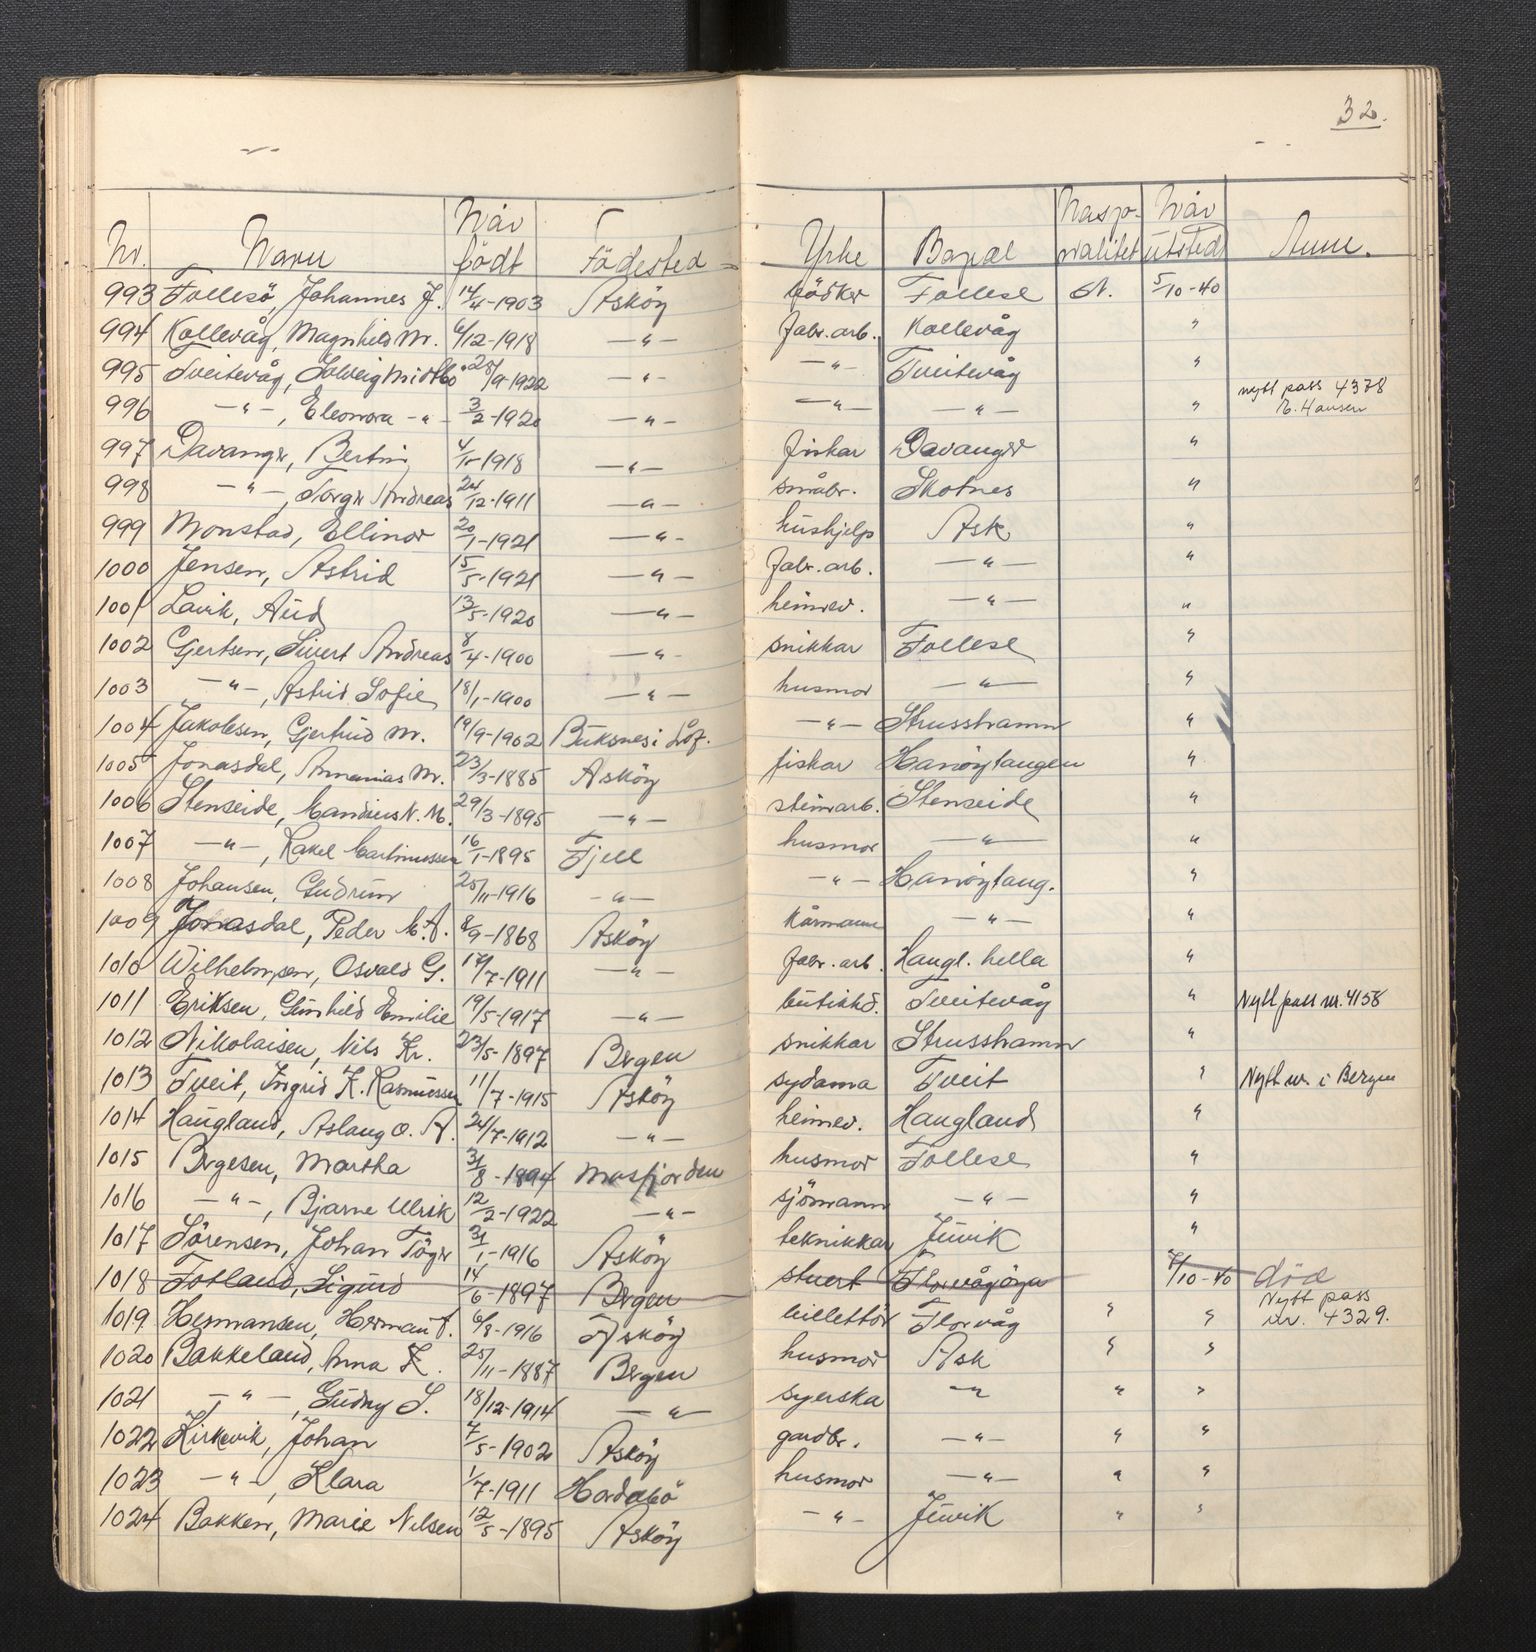 32.
Nr. Navn Når födt Födested Yrke Bopæl Nasjonalitet Når utsted Anm.
993 Follesö, Johannes J. 14/4-1903 Asköy bödker Follese N. 5/10-40
994 Kollevåg, Magnhild M. 6/12-1918 -"- fabr.arb. Kollevåg "
995 Tveitevåg, Solveig Midtbö 28/9-1922 -"- -"- Tveitevåg "
996 -"-, Eleonora -"- 3/2-1920 -"- -"- -"- " nytt pass 4378 B. Hansen
997 Davanger, Bertin 4/11-1918 -"- fiskar Davanger "
998 -"-, Torger Andreas 24/12-1911 -"- småbr. Skotnes "
999 Monstad, Ellinor 20/1-1921 -"- hushjelp Ask "
1000 Jensen, Astrid 15/5-1921 -"- fabr.arb. -"- "
1001 Lavik, Aud 13/5-1920 -"- heimev. -"- "
1002 Gjertsen, Sivert Andreas 8/4-1900 -"- snikkar Follese "
1003 -"-, Astrid Sofie 18/1-1900 -"- husmor -"- "
1004 Jakobsen, Gjertrud M. 19/9-1902 Buksnes i Lof. -"- Strusshamn "
1005 Jonasdal, Annanias M. 23/3-1885 Asköy fiskar Hanöytangen "
1006 Stenseide, Mandius N. M. 29/3-1895 -"- steinarb. Stenseide "
1007 -"-, Rakel Martinussen 16/1-1895 Fjell husmor -"- "
1008 Johansen, Gudrun 25/11-1916 -"- -"- Hanöytang. "
1009 Jonasdal, Peder M. A. 8/9-1868 Asköy kårmann -"- "
1010 Wilhelmsen, Osvald G. 17/7-1911 -"- fabr.arb. Haugl.hella "
1011 Eriksen, Gunhild Emilie 19/5-1917 -"- butikkd. Tveitevåg " Nytt pass nr. 4158
1012 Nikolaisen, Nils Kr. 23/5-1897 Bergen snikkar Strusshamn "
1013 Tveit, Ingrid K. Rasmussen 11/7-1915 Asköy sydama Tveit " Nytt nr. i Bergen
1014 Haugland, Aslaug O. A. 24/7-1912 -"- heimev. Haugland "
1015 Bergesen, Martha 31/8-1894 Masfjorden husmor Follese "
1016 -"-, Bjarne Ulrik 12/2-1922 -"- sjömann -"- "
1017 Sörensen, Johan Töger 31/1-1916 Asköy teknikkar Juvik "
1018 Fotland, Sigurd 14/6-1897 Bergen stuert Florvågöyen 7/10-40 död
1019 Hermansen, Herman F. 6/8-1916 Asköy billettör Florvåg " " Nytt pass nr. 4329.
1020 Bakkeland, Anna K. 25/11-1887 Bergen husmor Ask " "
1021 -"-, Gudny S. 18/12-1914 -"- syerska -"- " "
1022 Kirkevik, Johan 7/5-1902 Asköy gardbr. -"- " "
1023 -"-, Klara 1/7-1911 Hordabö husmor -"- " "
1024 Bakken, Marie Nilsen 12/5-1895 Asköy -"- Juvik " "